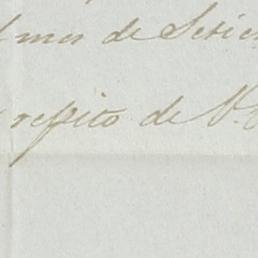 mes de Setie
respito de V.